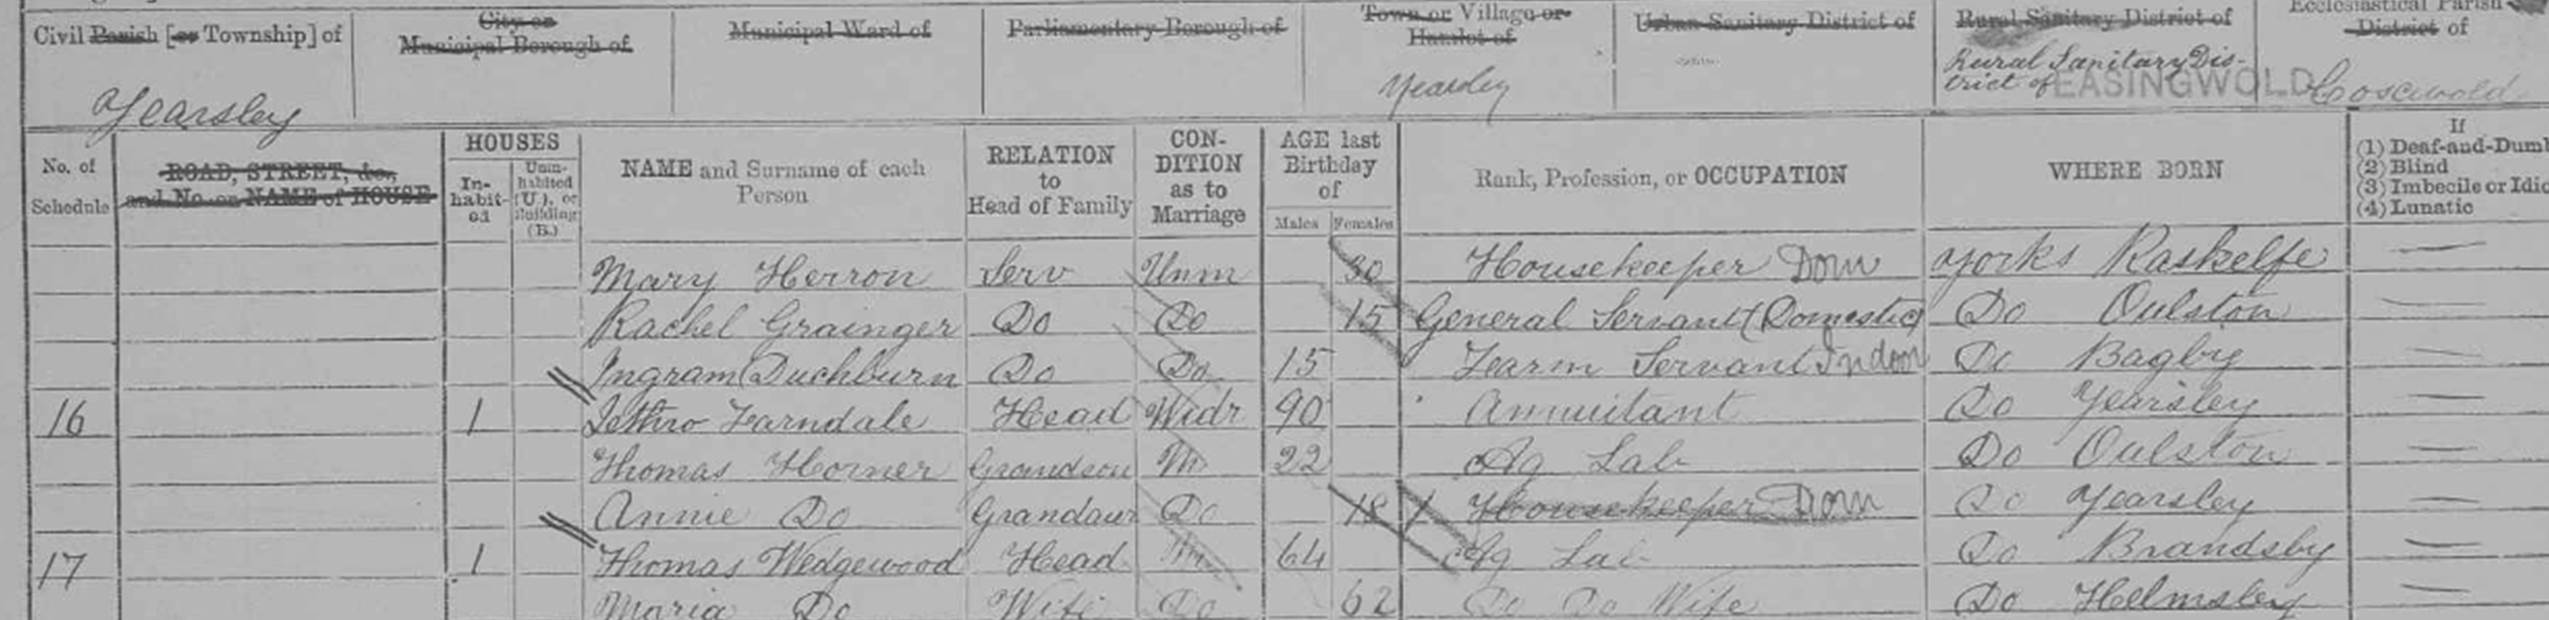 Civil Parish [or Township] of
City or Municipal Borough of
Municipal Ward of
Parliamentary Borough of
Town or Village or Hamlet of
Urban Sanitary District of
Rural Sanitary District of
Ecclesiastical Parish
District of
Yearsley
Yearsley
Rural Sanitary Dis-
trict of EASINGWOLD
Coxwold
No. of Schedule
ROAD, STREET, &c., and No. or NAME of HOUSE
HOUSES
In-habit-ed
Unin-habited (U.), or Building (B.)
NAME and Surname of each Person
RELATION to Head of Family
CON-DITION as to Marriage
AGE last Birthday of
Males Females
Rank, Profession, or OCCUPATION
WHERE BORN
If
(1) Deaf-and-Dumb
(2) Blind
(3) Imbecile or Idio
(4) Lunatic
Mary Herron Serv Unm 30 Housekeeper Dom Yorks Raskelfe —
Rachel Grainger Do Do 15 General Servant (Domestic) Do Oulston —
Ingram Duchburn Do Do 15 Farm Servant Indoor Do Bagby —
16 1 Jethro Farndale Head Widr 90 Annuitant Do Yearsley —
Thomas Horner Grandson M 22 Ag Lab Do Oulston —
Annie Do Grandaur Do 18 Housekeeper Dom Do Yearsley —
17 1 Thomas Wedgewood Head M 64 Ag Lab Do Brandsby —
Maria Do Wife Do 62 Do Do Wife Do Helmsley —